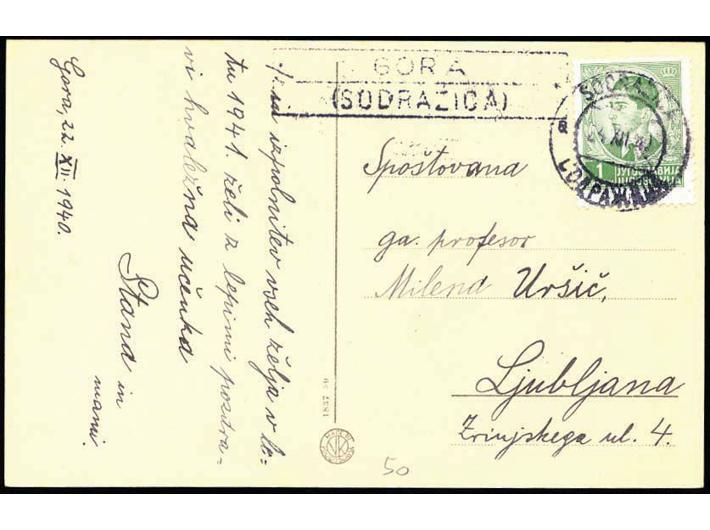 Gora, 22. XII. 1940.
izpolnitev vseh želja v le-
tu 1941. želi z lepimi pozdra-
vi hvaležna učenka
Stana in
mami.
GORA
(SODRAŽICA)
Spoštovana
ga. profesor
Milena Uršič,
Ljubljana
Zrinjskega ul. 4.
SODRAŽICA
XII. 40
СОДРАЖИЦА
1
50